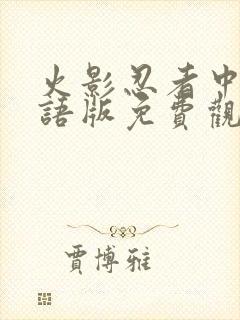 火影忍者中
語版免費觀
賈博雅